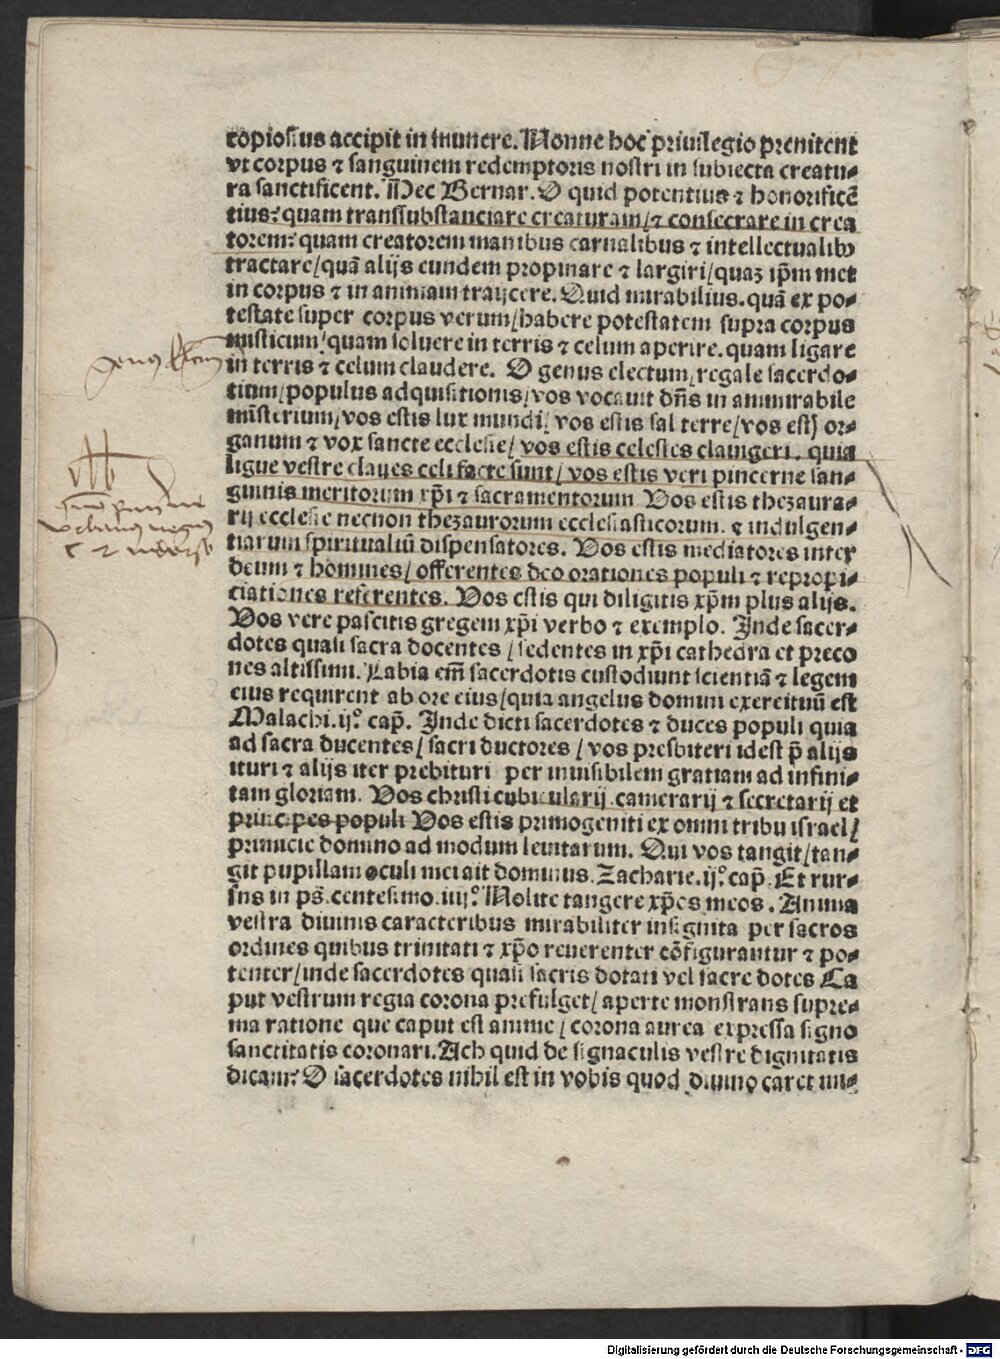 copiosius accipit in munere. Nonne hoc priuilegio prenitent
vt corpus ⁊ sanguinem redemptoris nostri in subiecta creatu-
ra sanctificent. Nec Bernar. O quid potentius ⁊ honorificē
tius: quam transsubstanciare creaturam/⁊ consecrare in crea
torem: quam creatorem manibus carnalibus ⁊ intellectualibꝰ
tractare/quā alijs eundem propinare ⁊ largiri/quaꝫ ip̄m met
in corpus ⁊ in animam traijcere. Quid mirabilius. quā ex po-
testate super corpus verum/habere potestatem supra corpus
misticum/quam soluere in terris ⁊ celum aperire. quam ligare
in terris ⁊ celum claudere. O genus electum/regale sacerdo-
tium/populus adquisitionis/vos vocauit dn̄s in ammirabile
mīsterium/vos estis lux mundi/vos estis sal terre/vos estꝭ or-
ganum ⁊ vox sancte ecclesie/vos estis celestes clauigeri. quia
ligue vestre claues celi facte sunt/vos estis veri pincerne san-
guinis meritorum xp̄i ⁊ sacramentorum Vos estis thezaura-
rij ecclesie necnon thezaurorum ecclesiasticorum. ⁊ indulgen-
tiarum spiritualiū dispensatores. Vos estis mediatores inter
deum ⁊ homines/offerentes deo orationes populi ⁊ repropi-
ciationes referentes. Vos estis qui diligitis xp̄m plus alijs.
Vos vere pascitis gregem xp̄i verbo ⁊ exemplo. Inde sacer-
dotes quasi sacra docentes/sedentes in xp̄i cathedra et preco
nes altissimi. Labia em̄ sacerdotis custodiunt scientiā ⁊ legem
eius requirent ab ore eius/quia angelus domini exercituū est
Malachi.ij.° cap̄. Inde dicti sacerdotes ⁊ duces populi quia
ad sacra ducentes/sacri ductores/vos presbiteri idest p̄ alijs
ituri ⁊ alijs iter prebituri per inuisibilem gratiam ad infini-
tam gloriam. Vos christi cubicularij camerarij ⁊ secretarij et
principes populi Vos estis primogeniti ex omni tribu israel/
primicie domino ad modum leuitarum. Qui vos tangit/tan-
git pupillam oculi mei ait dominus. Zacharie.ij.° cap̄. Et rur-
sus in ps̄. centesimo.iiij.° Nolite tangere xp̄os meos. Anima
vestra diuinis caracteribus mirabiliter insignita per sacros
ordines quibus trinitati ⁊ xp̄o reuerenter cōfigurantur ⁊ po-
tenter/inde sacerdotes quasi sacris dotati vel sacre dotes Ca
put vestrum regia corona prefulget/aperte monstrans supre-
ma ratione que caput est anime/corona aurea expressa signo
sanctitatis coronari. Ach quid de signaculis vestre dignitatis
dicam: O sacerdotes nihil est in vobis quod diuino caret mi-
Digitalisierung gefördert durch die Deutsche Forschungsgemeinschaft - DFG